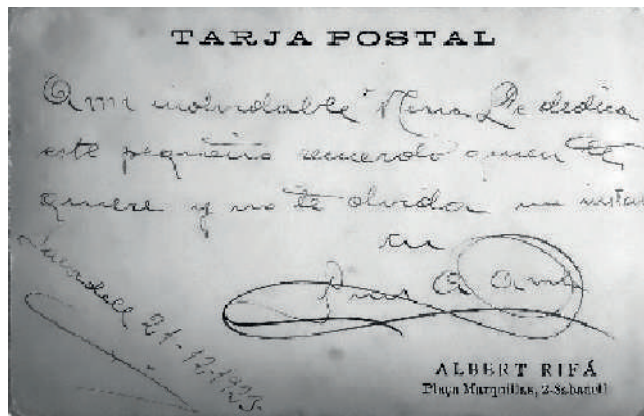 TARJA POSTAL
A mi inolvidable Nena Le dedica
este pequeño recuerdo quien te
quiere y no te olvida un instan
tu
Sabadell 21-12-1925
ALBERT RIFÁ
Plaça Marquillas, 2-Sabadell